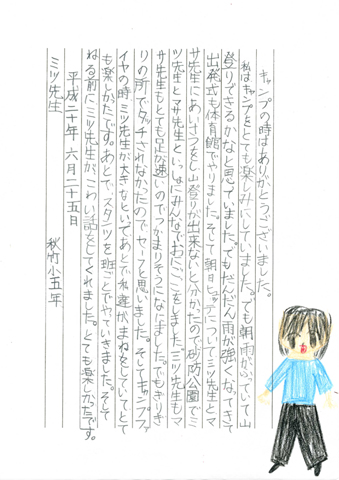 キャンプの時はありがとうございました。
私はキャンプをとても楽しみにしていました。でも朝雨がふっていて山
登りできるかなと思っていました。でもだんだん雨が強くなってきて
出発式も体育館でやりました。そして朝日ヒュッテについてミツ先生とマ
サ先生にあいさつをし、山登りが出来ないとわかったので砂防公園でミ
ツ先生とマサ先生といっしょにみんなでおにごっこをしました。ミツ先生もマ
サ先生もとても足が速いのでつかまりそうになりました。でもぎりぎ
りの所でタッチされなかったのでセーフと思いました。そしてキャンプファ
イヤの時ミツ先生が大きなといってあとで私達がまねをしていてとて
も楽しかたです。あとでスタンツを班ごとでやっていきました。そして
ねる前にミツ先生がこわい話をしてくれました。とても楽しかったです。
平成二十年 六月二十五日
ミツ先生 秋竹小五年